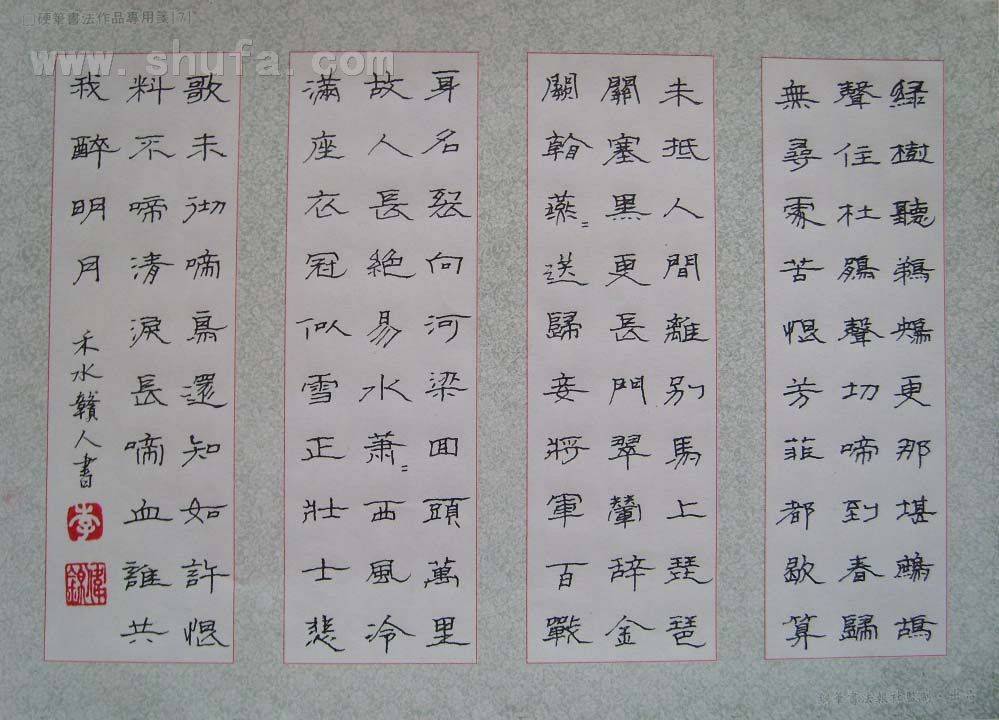 硬筆書法作品專用箋[7]
www.shufa.com
綠樹聽鵜鴂更那堪鷓鴣
聲住杜鵑聲切啼到春歸
無尋處苦恨芳菲都歇算
未抵人間離別馬上琵琶
關塞黑更長門翠輦辭金
闕看燕=送歸妾將軍百戰
身名裂向河梁回頭萬里
故人長絕易水蕭=西風冷
滿座衣冠似雪正壯士悲
歌未徹啼鳥還知如許恨
料不啼清淚長啼血誰共
我醉明月
禾水贛人書
李